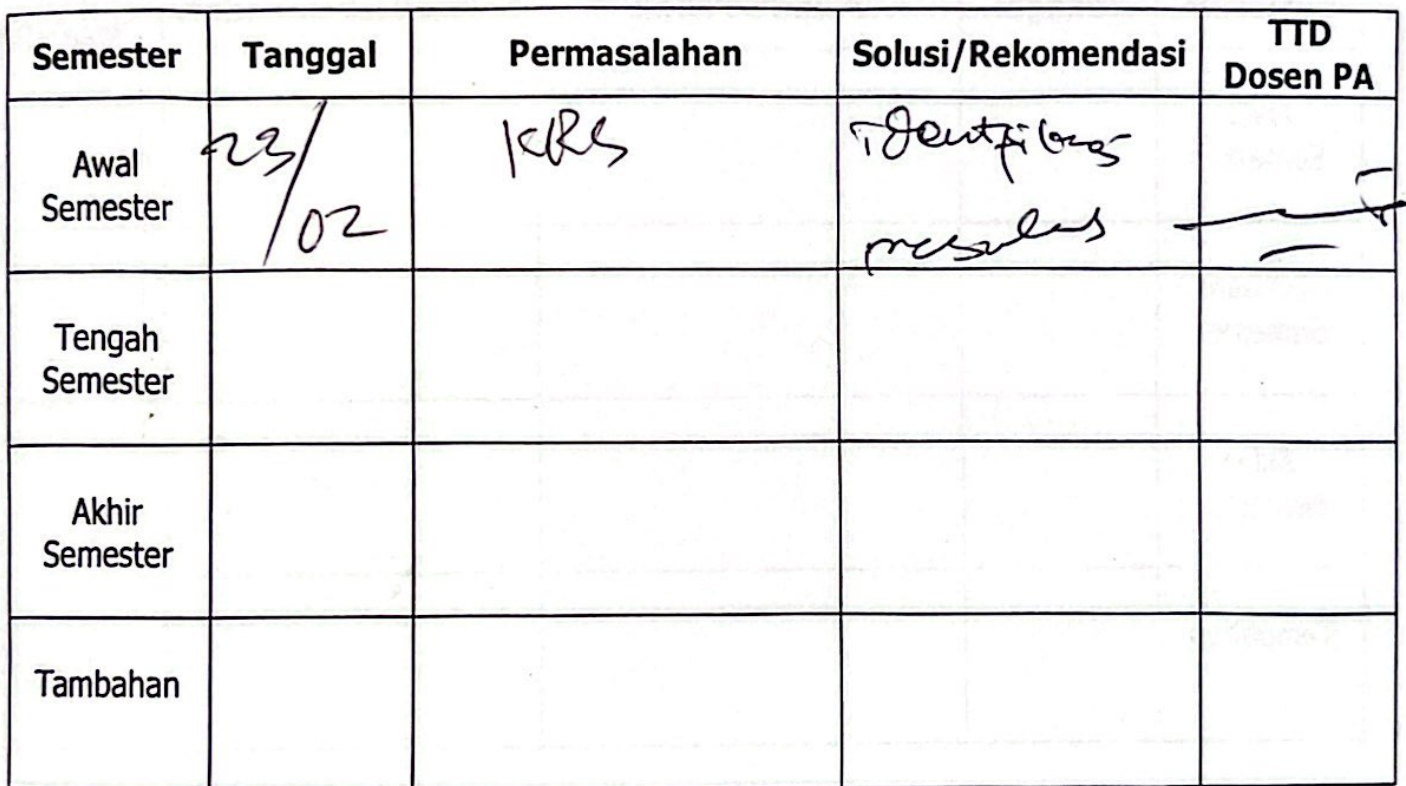 Semester Tanggal Permasalahan Solusi/Rekomendasi TTD Dosen PA
Awal Semester 23/02 KRS identifikasi
Tengah Semester
Akhir Semester
Tambahan